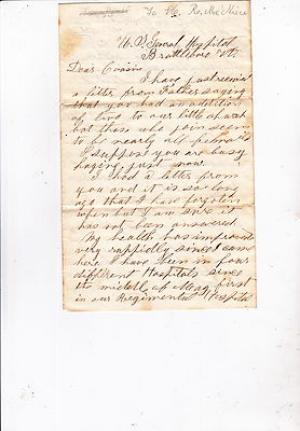 To
U.S. General Hospital
Brattleboro Vt.
Dear Cousin
I have just received
a letter from Father saying
that you had an addition
of five to our little church
but those who join seem
to be nearly all females
I suppose you are busy
haying just now.
I had a letter from
you and it is so long
ago that I have forgoten
when but I am sure it
has not been answered
My health has improved
very rappidly since I came
here I have been in four
different Hospitals since
the middle of May first
in our Regimental Hospital